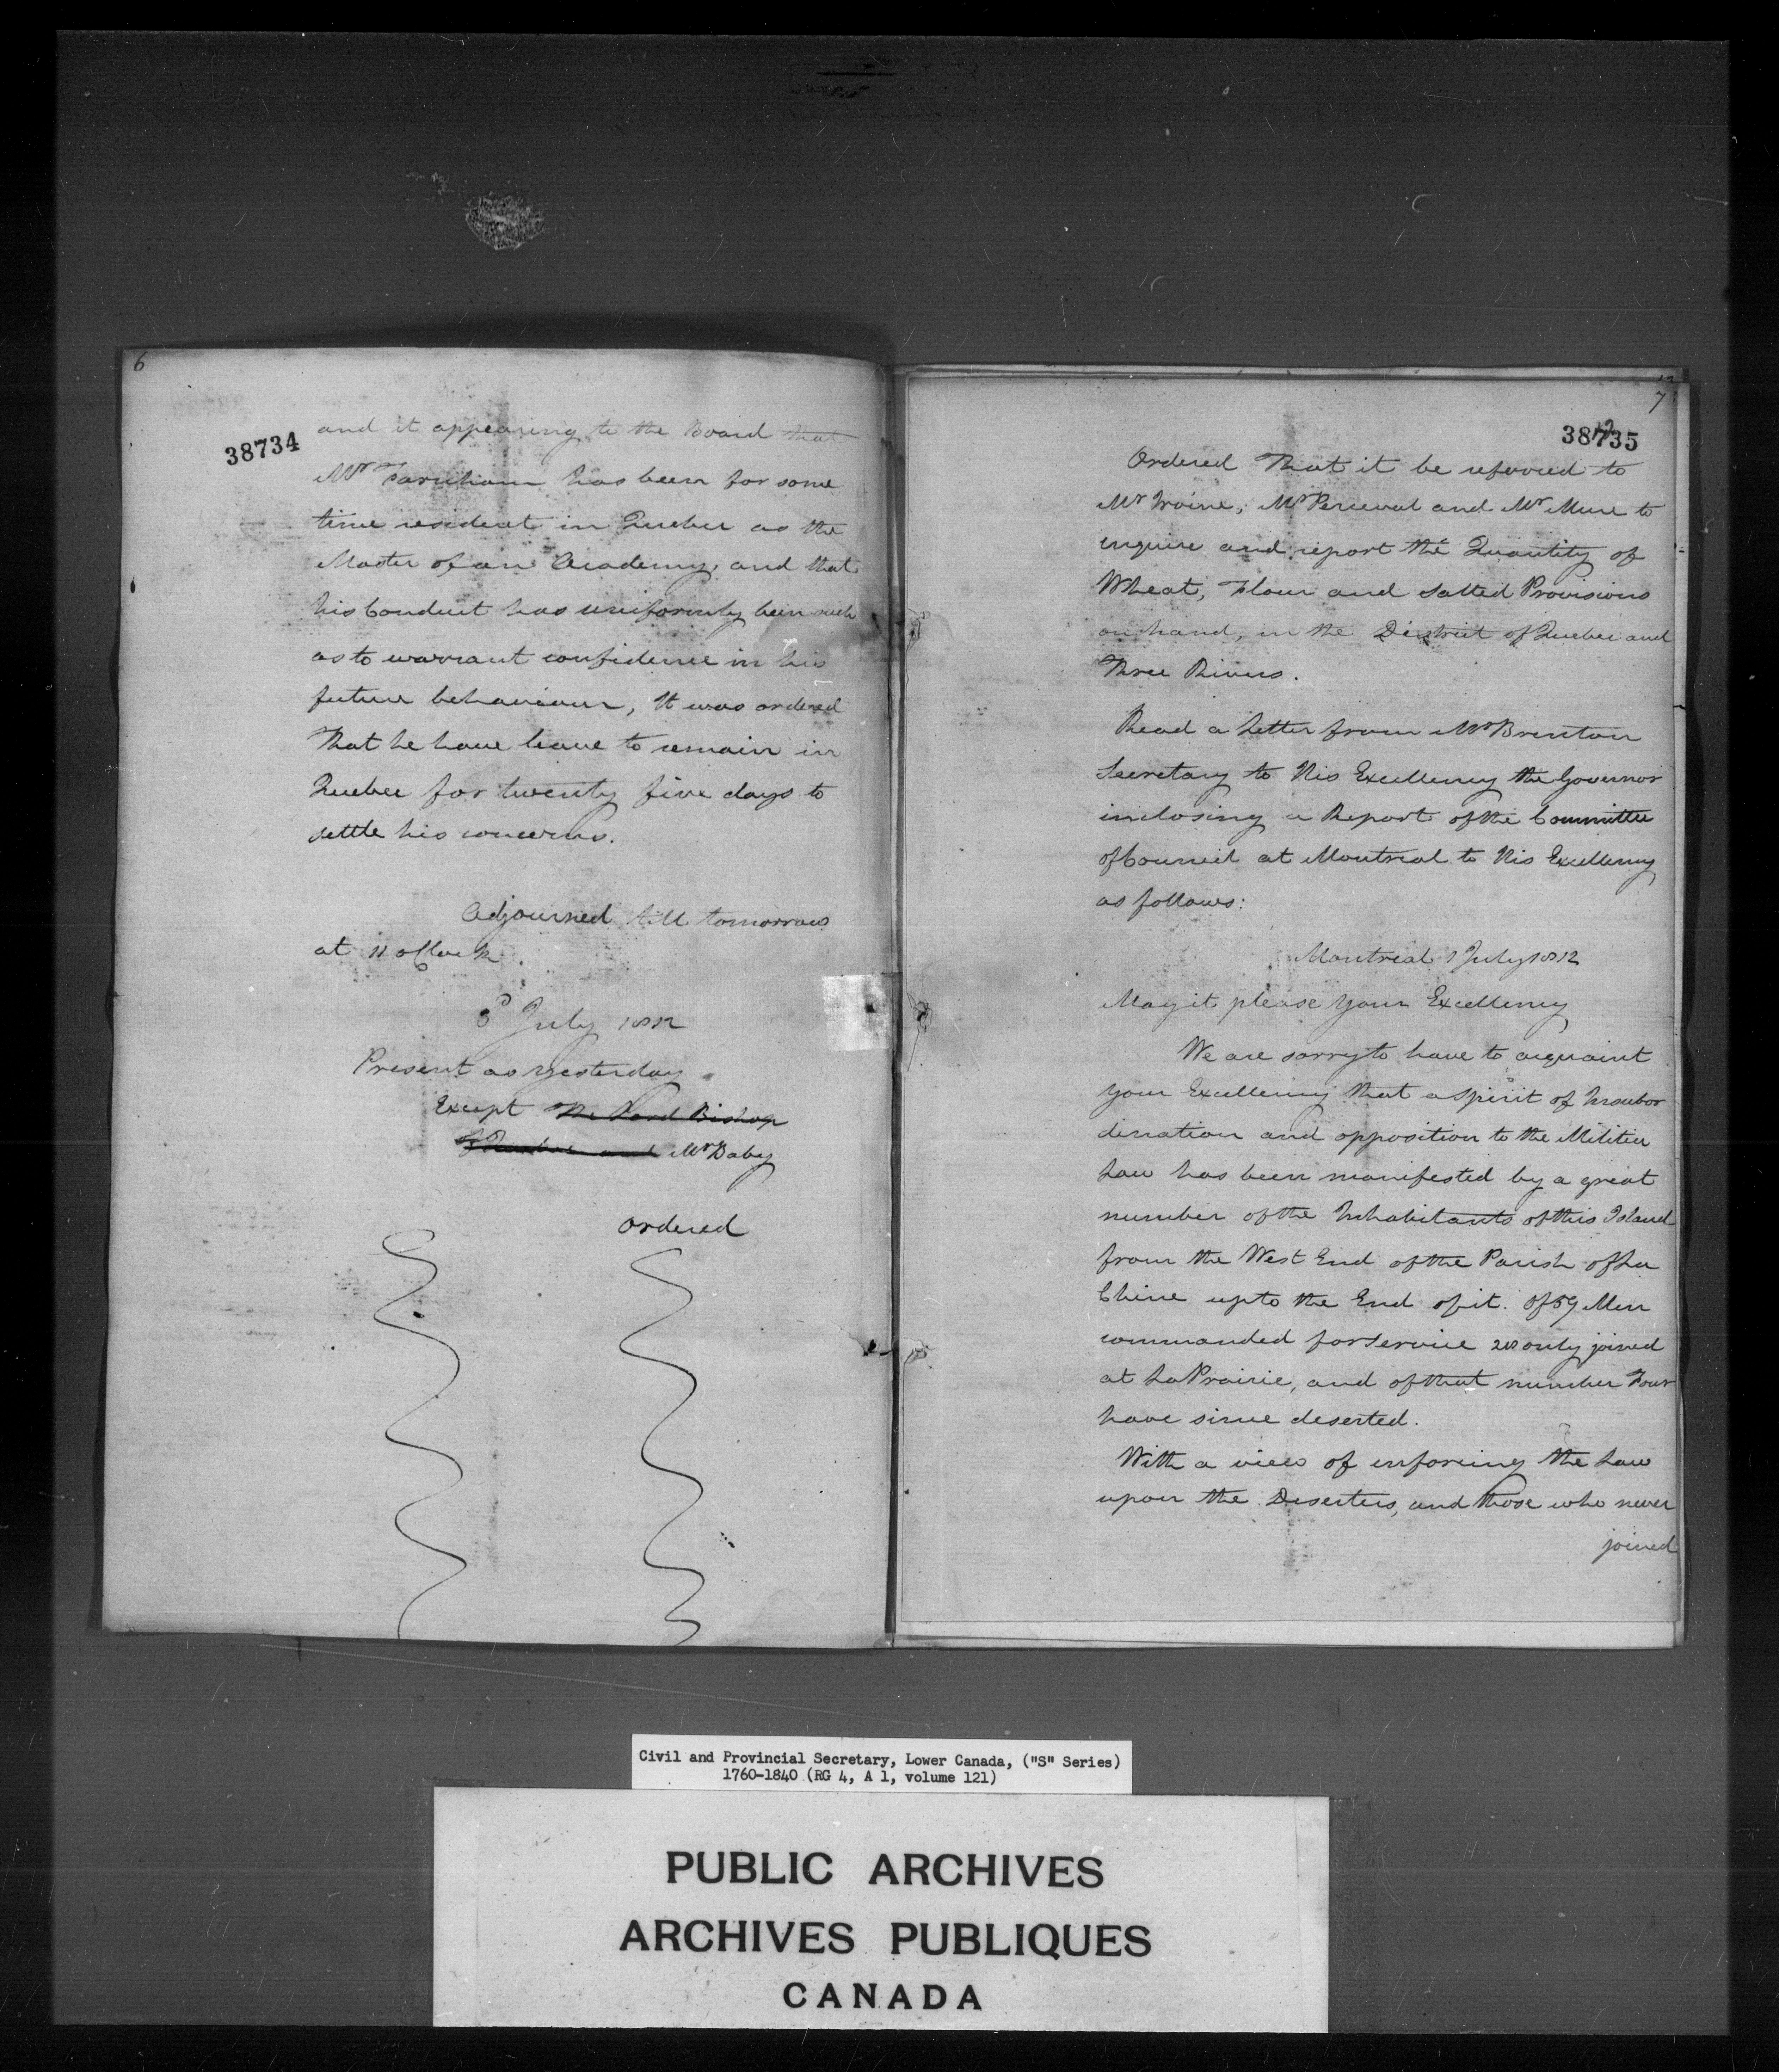 6
38734
and it appearing to the Board that
Mr Farnham has been for some
time resident in Quebec as the
Master of an Academy, and that
his Conduct has uniformly been such
as to warrant confidence in his
future behaviour, It was ordered
That he have leave to remain in
Quebec for twenty five days to
settle his concerns.
Adjourned till tomorrow
at 11 oClock.
3d July 1812
Present as yesterday
Except The Lord Bishop
of Quebec and Mr Baby
Ordered
7
38735
Ordered That it be referred to
Mr Irvine, Mr Perceval and Mr Mure to
enquire and report the Quantity of
Wheat, Flour and Salted Provisions
on hand, in the District of Quebec and
Three Rivers.
Read a Letter from Mr Brenton
Secretary to His Excellency the Governor
inclosing a Report of the Committee
of Council at Montreal to His Excellency
as follows:
Montreal 1 July 1812
May it please Your Excellency
We are sorry to have to acquaint
your Excellency that a spirit of Insubor
dination and opposition to the Militia
Law has been manifested by a great
number of the Inhabitants of this Island
from the West End of the Parish of La
Chine up to the End of it. Of 59 Men
commanded for Service 28 only joined
at La Prairie, and of that number Four
have since deserted.
With a view of enforcing the Law
upon the Deserters, and those who never
joined
Civil and Provincial Secretary, Lower Canada, ("S" Series)
1760-1840 (RG 4, A 1, volume 121)
PUBLIC ARCHIVES
ARCHIVES PUBLIQUES
CANADA